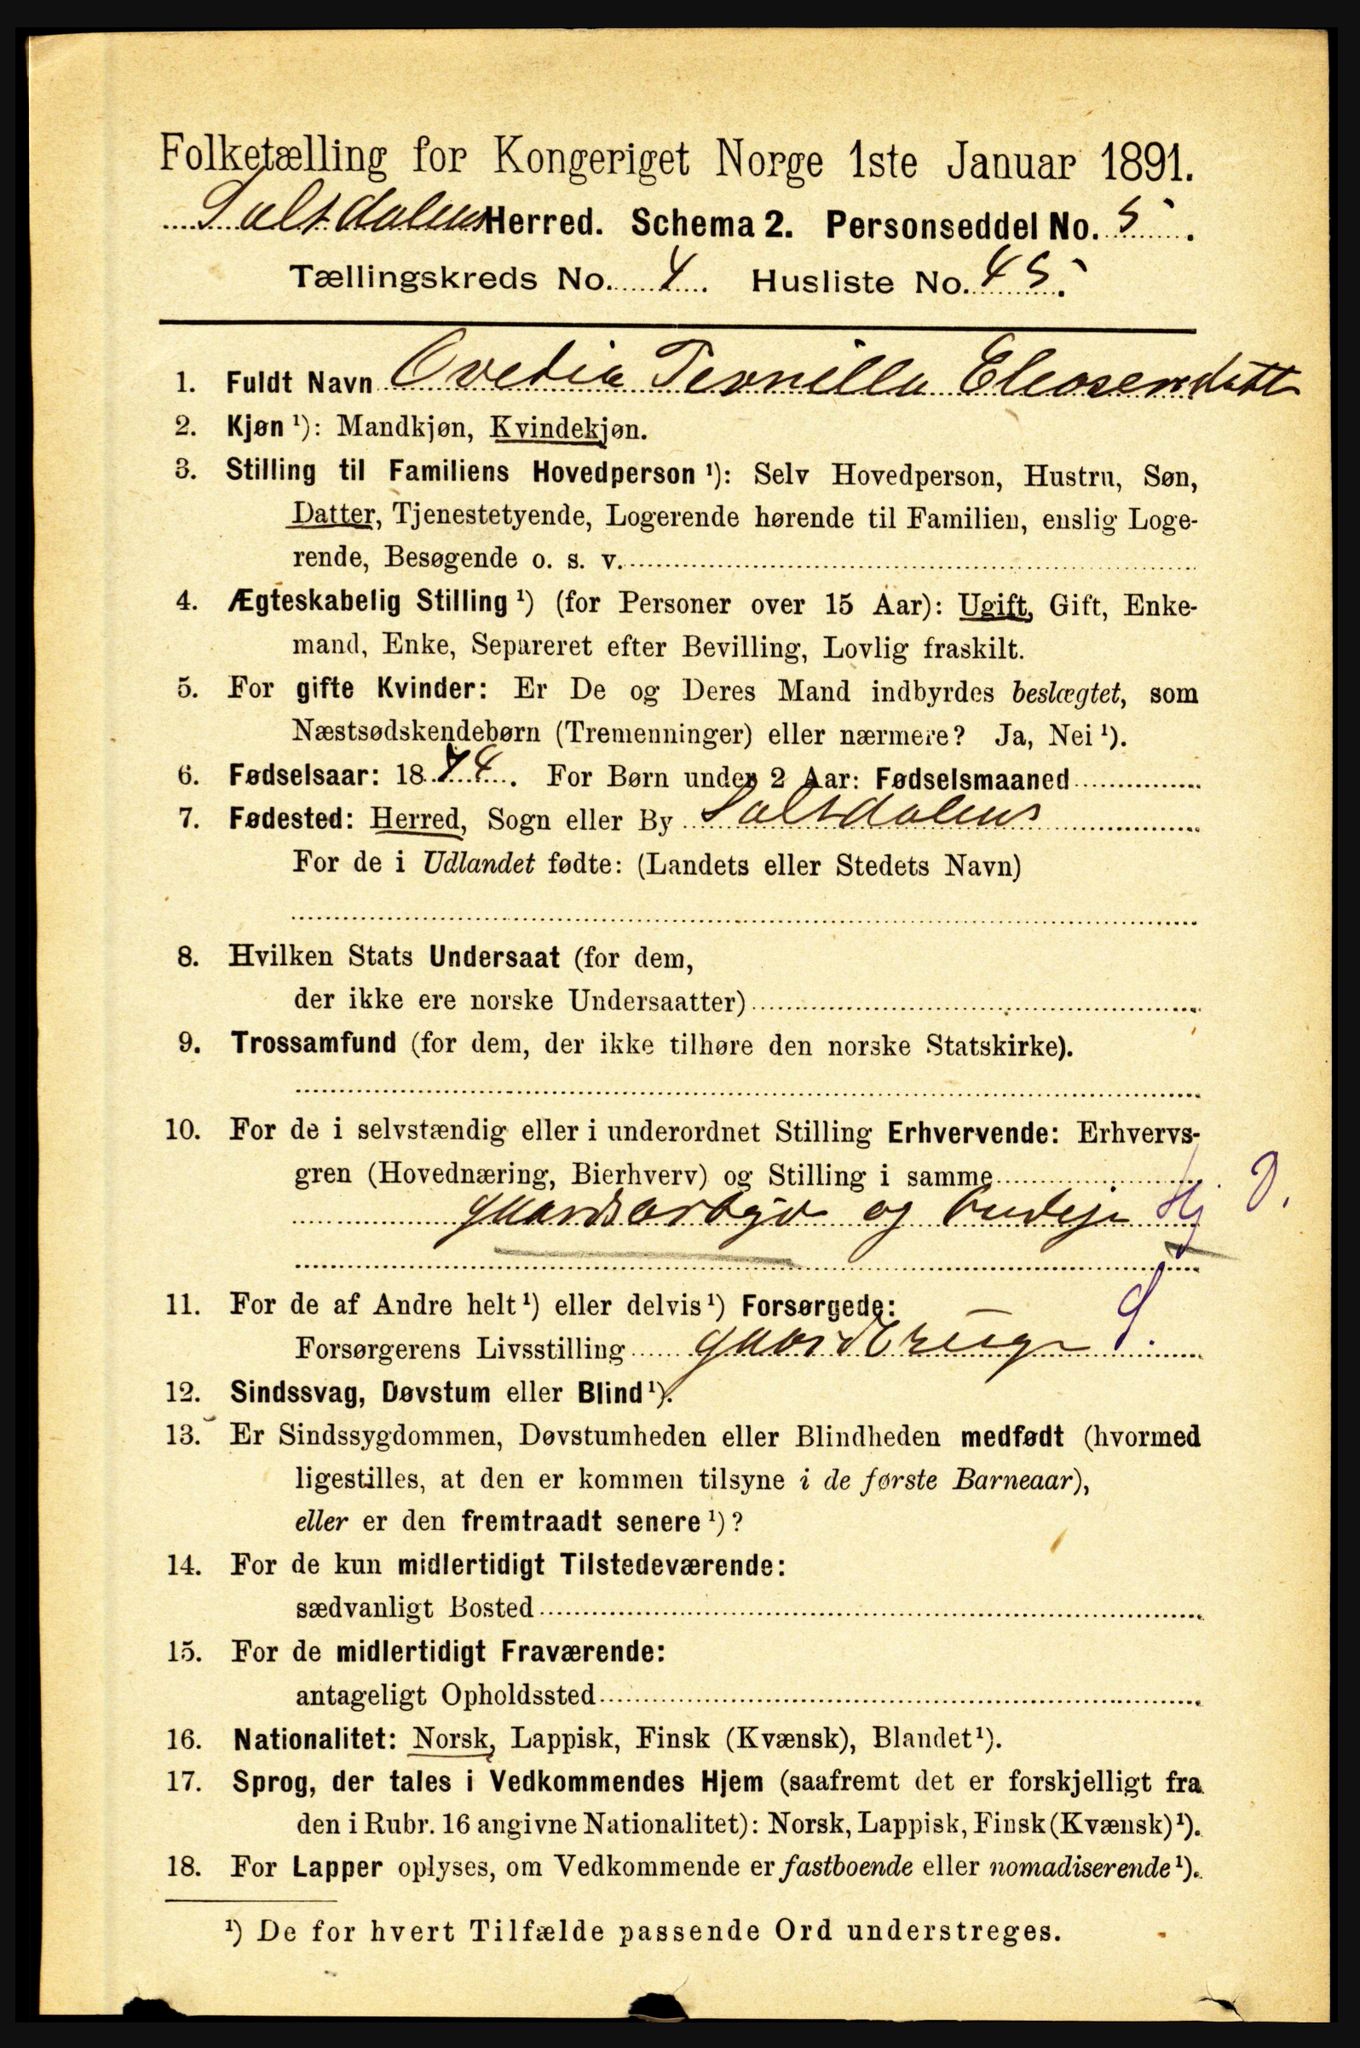 Folketælling for Kongeriget Norge 1ste Januar 1891.
Saltdalens Herred. Schema 2. Personseddel No. 5.
Tællingskreds No. 4. Husliste No. 45.
1. Fuldt Navn Ovedia Pernilla Eleosersdatt
2. Kjøn ¹): Mandkjøn, Kvindekjøn.
3. Stilling til Familiens Hovedperson ¹): Selv Hovedperson, Hustru, Søn,
Datter, Tjenestetyende, Logerende hørende til Familien, enslig Loge-
rende, Besøgende o. s. v.
4. Ægteskabelig Stilling ¹) (for Personer over 15 Aar): Ugift, Gift, Enke-
mand, Enke, Separeret efter Bevilling, Lovlig fraskilt.
5. For gifte Kvinder: Er De og Deres Mand indbyrdes beslægtet, som
Næstsødskendebørn (Tremenninger) eller nærmere? Ja, Nei ¹).
6. Fødselsaar: 1874. For Børn under 2 Aar: Fødselsmaaned
7. Fødested: Herred, Sogn eller By Saltdalens
For de i Udlandet fødte: (Landets eller Stedets Navn)
8. Hvilken Stats Undersaat (for dem,
der ikke ere norske Undersaatter)
9. Trossamfund (for dem, der ikke tilhøre den norske Statskirke).
10. For de i selvstændig eller i underordnet Stilling Erhvervende: Erhvervs-
gren (Hovednæring, Bierhverv) og Stilling i samme
gaardsarbejde og budeje Hj D.
11. For de af Andre helt ¹) eller delvis ¹) Forsørgede:
Forsørgerens Livsstilling gaardbruger S.
12. Sindssvag, Døvstum eller Blind ¹).
13. Er Sindssygdommen, Døvstumheden eller Blindheden medfødt (hvormed
ligestilles, at den er kommen tilsyne i de første Barneaar),
eller er den fremtraadt senere ¹)?
14. For de kun midlertidigt Tilstedeværende:
sædvanligt Bosted
15. For de midlertidigt Fraværende:
antageligt Opholdssted
16. Nationalitet: Norsk, Lappisk, Finsk (Kvænsk), Blandet ¹).
17. Sprog, der tales i Vedkommendes Hjem (saafremt det er forskjelligt fra
den i Rubr. 16 angivne Nationalitet): Norsk, Lappisk, Finsk (Kvænsk) ¹).
18. For Lapper oplyses, om Vedkommende er fastboende eller nomadiserende ¹).
¹) De for hvert Tilfælde passende Ord understreges.